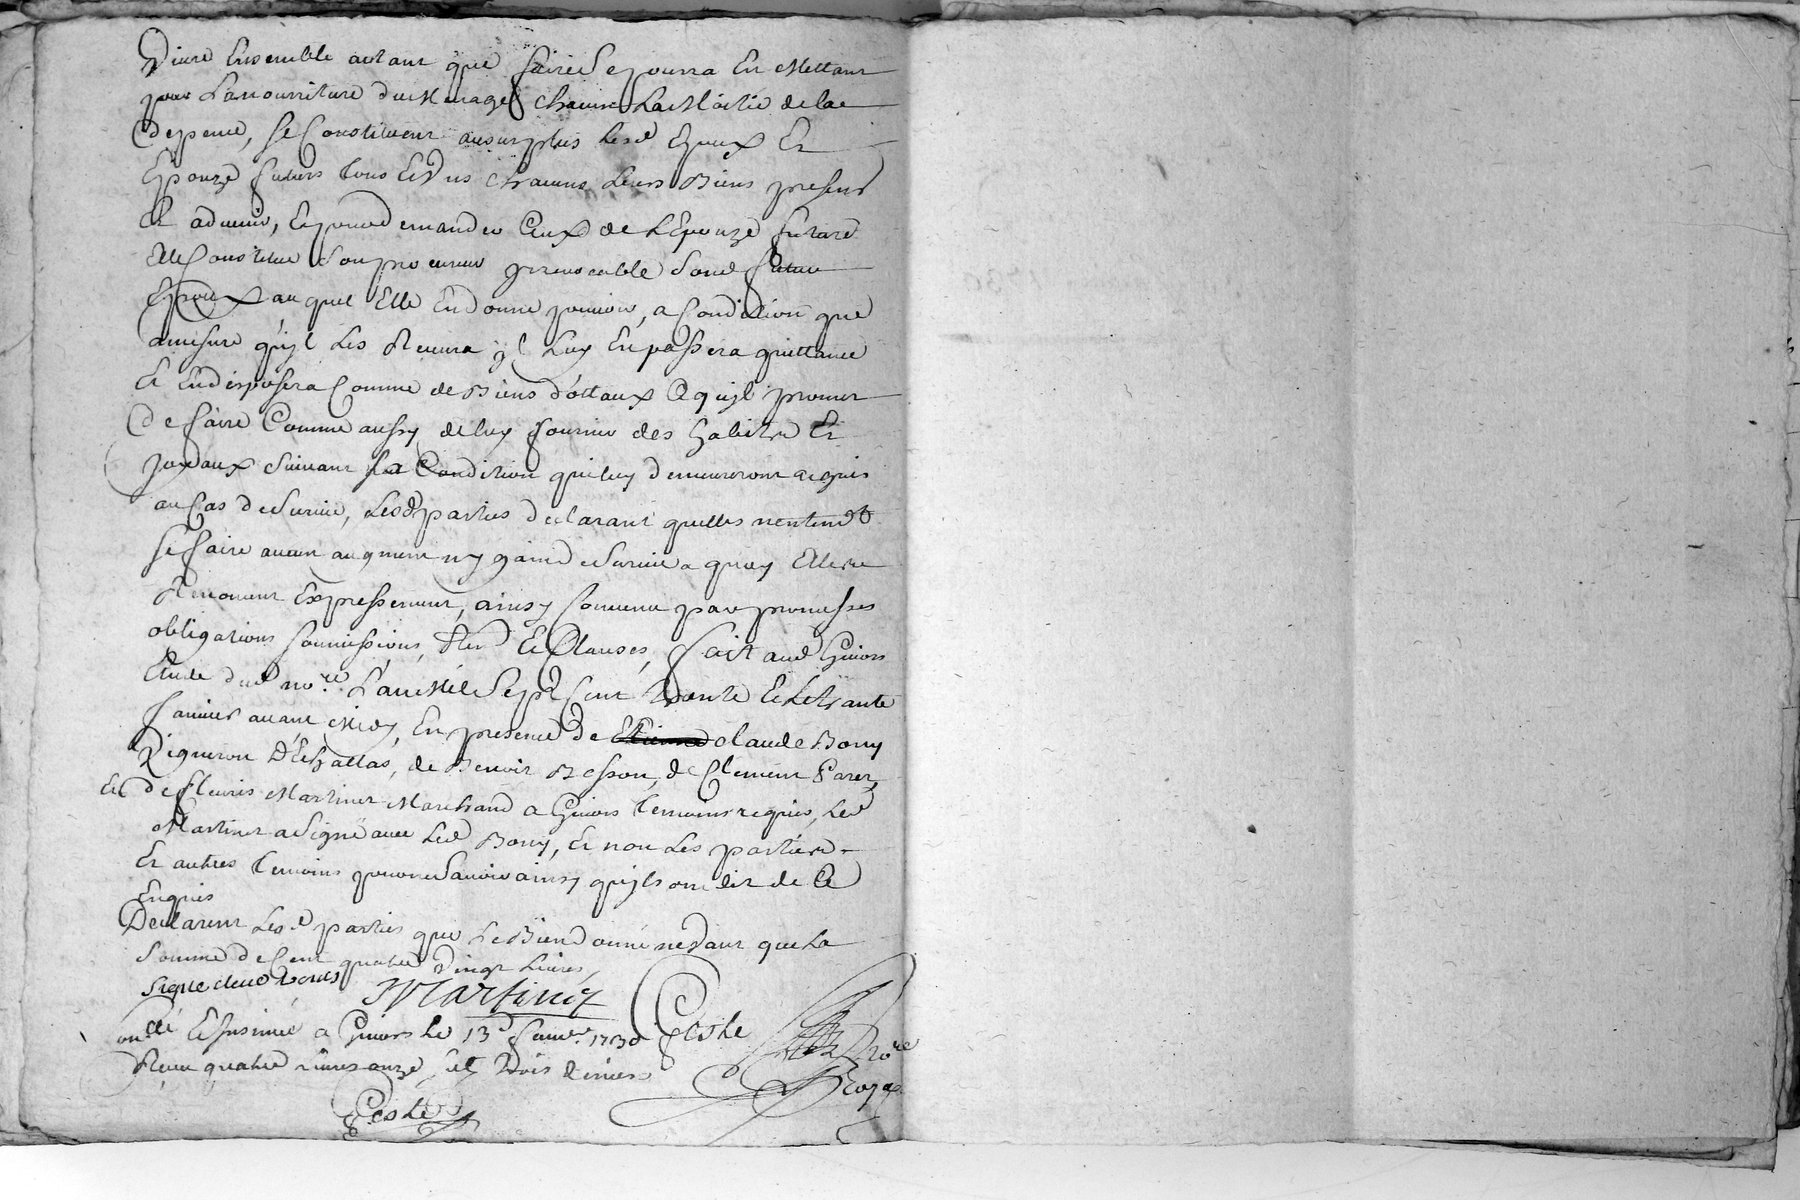 Vivre Ensemble autant que faire Se pourra En Mettant
pour La nourriture du Menage Chacun La Moitié de la
depense, se Constituent au surplus lesd Epoux Et
Epouze futurs tous Et Uns chacuns Leurs Biens presens
Et advenir, Et pour demander Ceux de L'Epouze future
Elle Constitue Son procureur irrevocable Sond futur
Epoux auquel Elle En donne pouvoir, a Condition que
amesure quil Les Recevra il Luy En passera quittance
Et En disposera Comme de Biens dottaux Ce quil promet
de faire Comme aussy de luy fournir des habits Et
joyaux Suivant sa Condition qui luy demeureront acquis
au Cas de Survie, Lesd parties declarant quelles nentendt
se faire aucun augment ny gain de Survie a quoy Elles
Renoncent Expressement, ainsy Convenu par promesses
obligations soumissions, Et Clauses, fait aud Givors
Etude dud nore. L'an Mil Sept Cent trente Et Le
janvier avant Midy, En presence de Claude Bony
Vigneron D'Echallas, de Benoit Besson, de Clement
Et de fleuris Martinet Marchand a Givors temoins requis, Led
Martinet a Signé avec Led Bony, Et non Les parties
Et autres temoins pour ne Savoir ainsy quils ont dit de Ce
Enquis
Declarent Lesd parties que Le Bien donné ne Vaut que La
Somme de Cent quatre Vingt Livres,
Martinet
Coste
onllé Et Insinué a Givors Le 13e janvr. 1730
Reçu quatre Livres onze sols trois deniers
nore
Royal
Coste